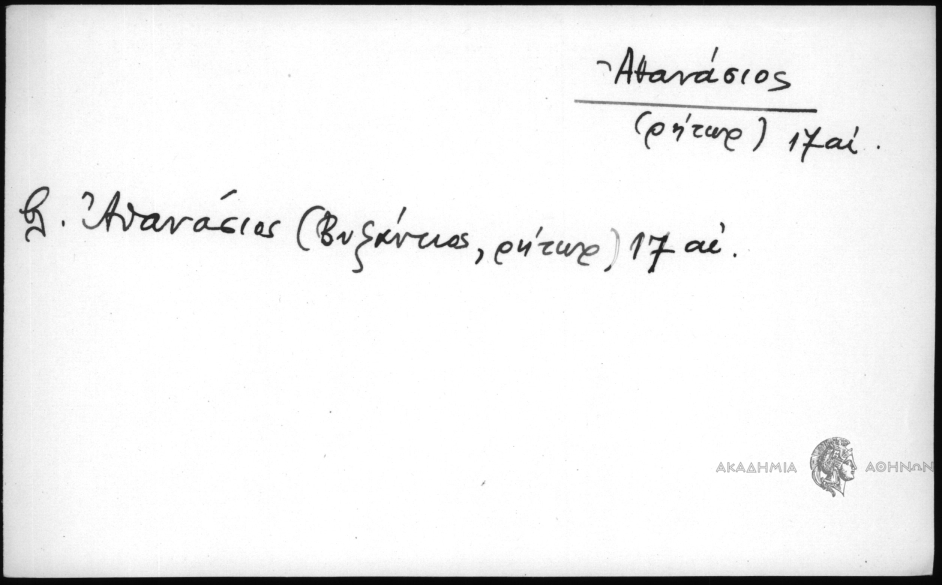 Ἀθανάσιος
(ρήτωρ) 17 αἰ.
βλ. Ἀθανάσιος (Βυζάντιος, ρήτωρ) 17 αἰ.
ΑΚΑΔΗΜΙΑ ΑΘΗΝΩΝ